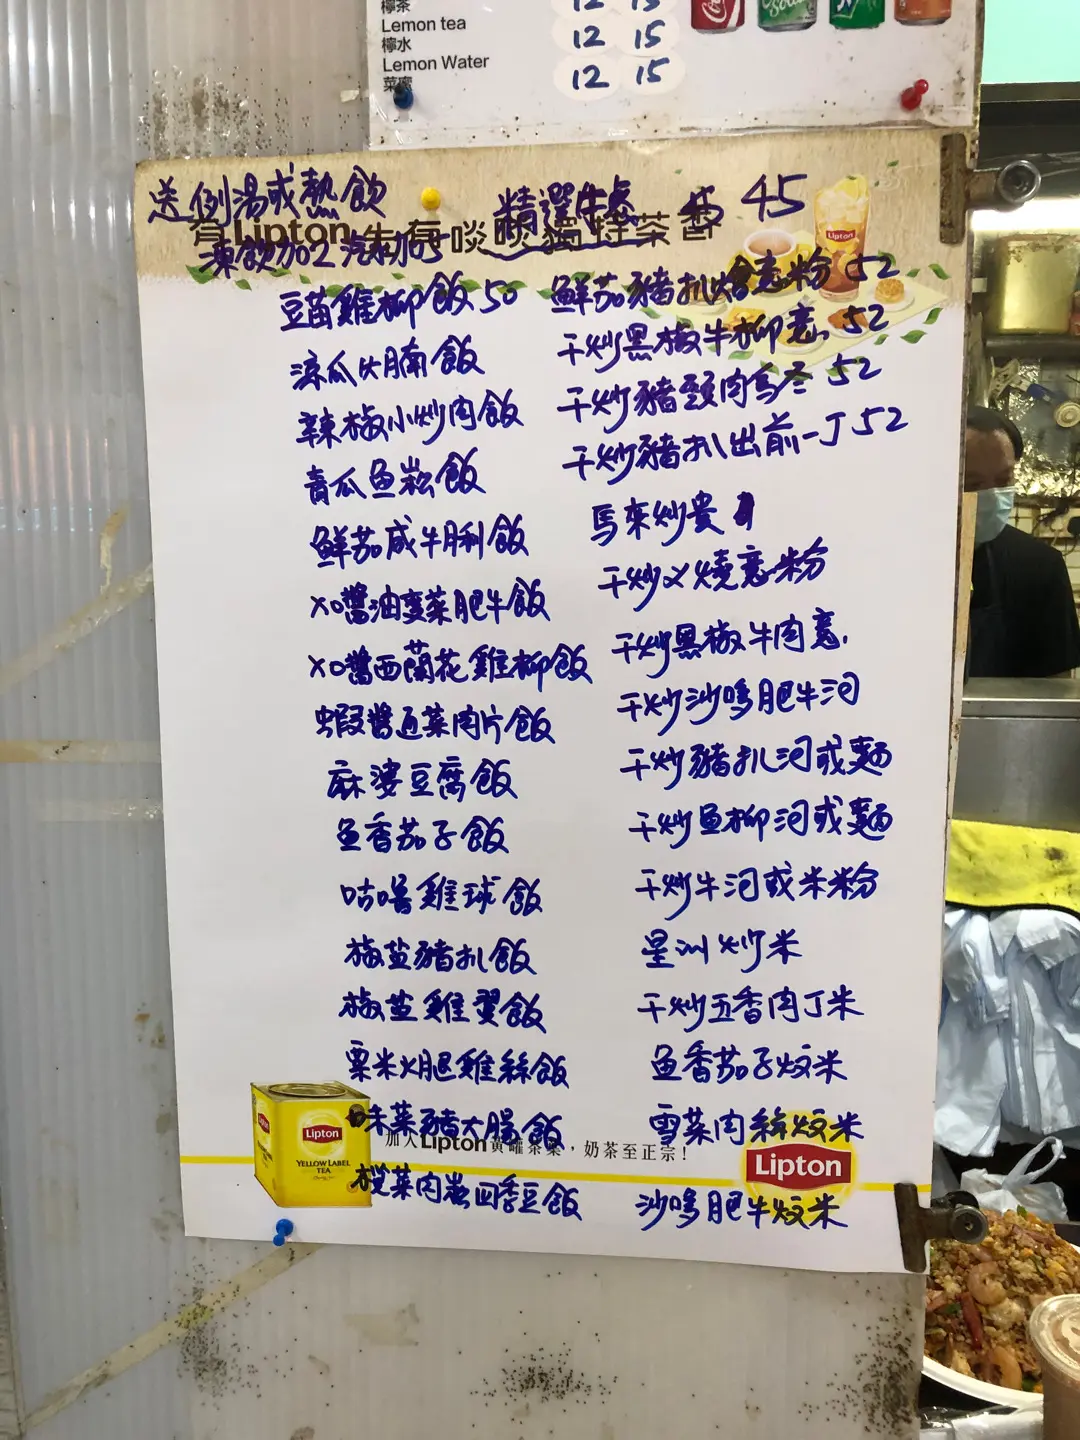 檸茶
Lemon tea 12 15
檸水
Lemon Water 12 15
菜蜜 12 15
送例湯或熱飲
精選牛桌 $45
有Lipton 有啖啖獨特茶香
凍飲加2 汽水加5
豆苗雞柳飯50
涼瓜火腩飯
辣椒小炒肉飯
青瓜魚崧飯
鮮茄咸牛脷飯
XO醬油麥菜肥牛飯
XO醬西蘭花雞柳飯
蝦醬通菜肉片飯
麻婆豆腐飯
魚香茄子飯
咕嚕雞球飯
椒盐豬扒飯
椒盐雞翼飯
粟米火腿雞絲飯
味菜豬大腸飯
欖菜肉崧四季豆飯
鮮茄豬扒燴意粉 52
干炒黑椒牛柳意 52
干炒豬頸肉烏冬 52
干炒豬扒出前一丁 52
馬來炒貴刁
干炒乂燒意粉
干炒黑椒牛肉意
干炒沙嗲肥牛河
干炒豬扒河或麵
干炒魚柳河或麵
干炒牛河或米粉
星洲炒米
干炒五香肉丁米
魚香茄子炆米
雪菜肉絲炆米
沙嗲肥牛炆米
加入Lipton黃罐茶葉，奶茶至正宗！
Lipton
YELLOW LABEL
TEA
Lipton
Lipton